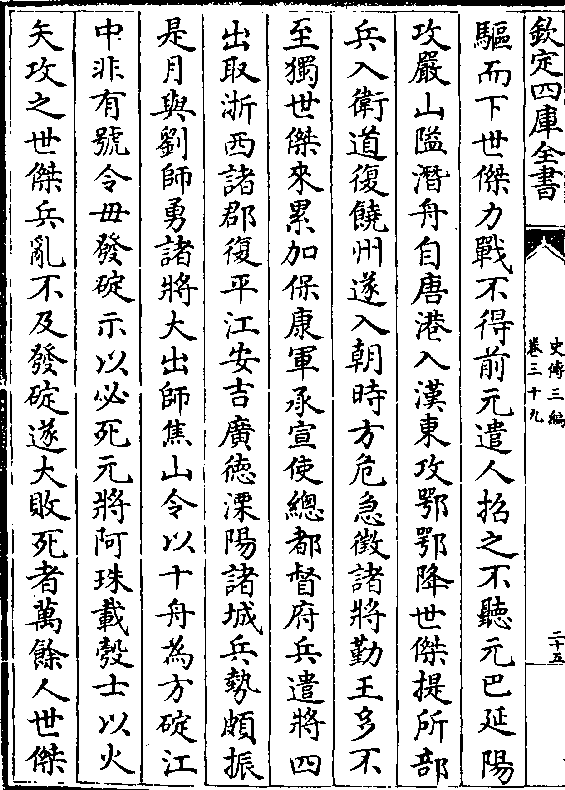 欽定四庫全書
史傳三編
卷三十九
二十五
驅而下世傑力戰不得前元遣人招之不聽元巴延陽
攻嚴山隘潛舟自唐港入漢東攻鄂鄂降世傑提所部
兵入衛道復饒州遂入朝時方危急徵諸將勤王多不
至獨世傑來累加保康軍承宣使總都督府兵遣將四
出取浙西諸郡復平江安吉廣徳溧陽諸城兵勢頗振
是月與劉師勇諸將大出師焦山令以十舟為方碇江
中非有號令毋發碇示以必死元將阿珠載彀士以火
矢攻之世傑兵亂不及發碇遂大敗死者萬餘人世傑